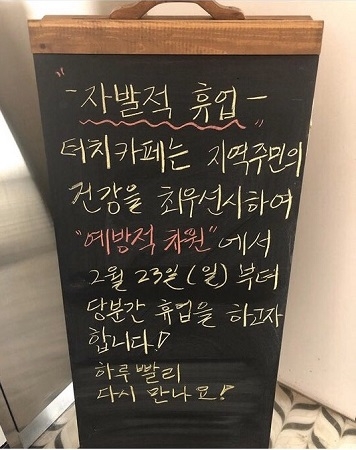 "-자발적 휴업-"
터치카페는 지역주민의
건강을 최우선시하여
"예방적 차원"에서
2월 23일(일) 부터
당분간 휴업을 하고자
합니다!
하루빨리
다시 만나요!